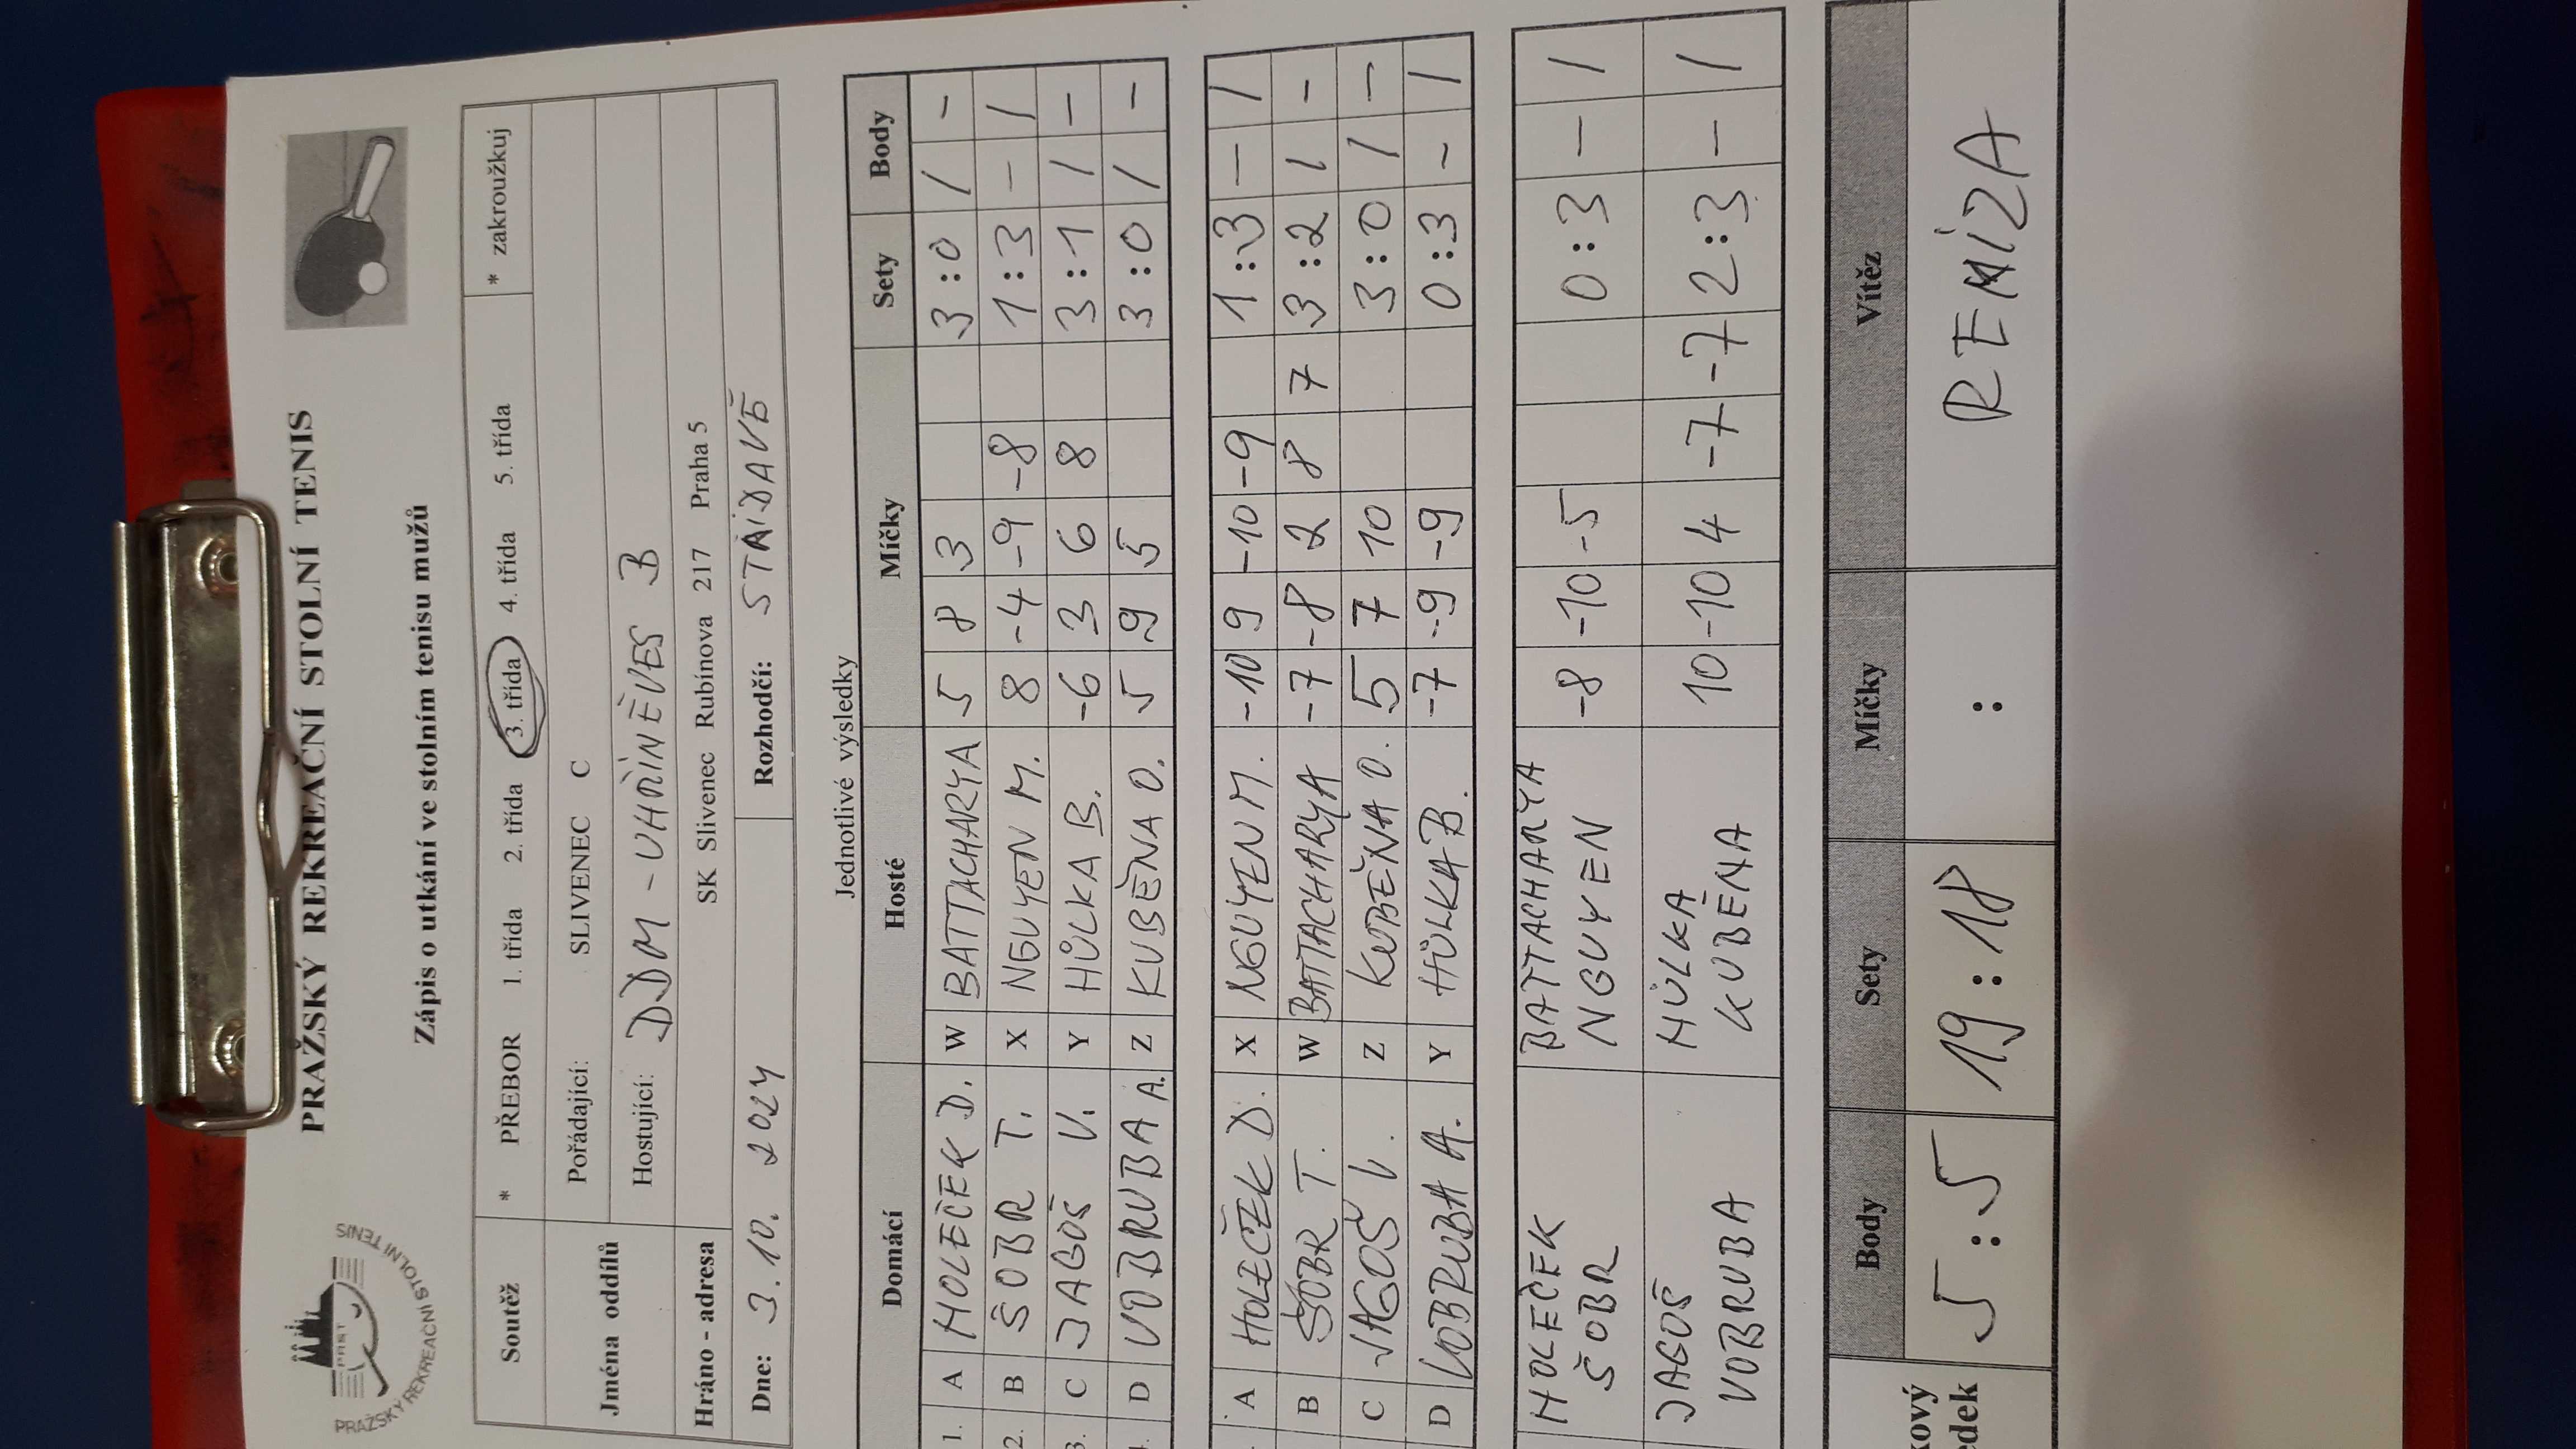 PRAŽSKÝ REKREAČNÍ STOLNÍ TENIS
PRAST
PRAŽSKÝ REKREAČNÍ STOLNÍ TENIS
Zápis o utkání ve stolním tenisu mužů
Soutěž * PŘEBOR 1. třída 2. třída 3. třída 4. třída 5. třída * zakroužkuj
Jména oddílů Pořádající: SLIVENEC C
Hostující: DDM - UHŘÍNĚVES B
Hráno - adresa SK Slivenec Rubínova 217 Praha 5
Dne: 3. 10. 2024 Rozhodčí: STŘÍDAVĚ
Jednotlivé výsledky
Domácí Hosté Míčky Sety Body
1. A HOLEČEK D. W BATTACHARYA 5 8 3 3:0 / -
2. B ŠOBR T. X NGUYEN M. 8 -4 -9 -8 1:3 - /
3. C JAGOŠ V. Y HŮLKA B. -6 3 6 8 3:1 / -
4. D VOBRUBA A. Z KUBĚNA O. 5 9 5 3:0 / -
A HOLEČEK D. X NGUYEN M. -10 9 -10 -9 1:3 - /
B ŠOBR T. W BATTACHARYA -7 -8 2 8 7 3:2 / -
C JAGOŠ V. Z KUBĚNA O. 5 7 10 3:0 / -
D VOBRUBA A. Y HŮLKA B. -7 -9 -9 0:3 - /
HOLEČEK BATTACHARYA
ŠOBR NGUYEN -8 -10 -5 0:3 - /
JAGOŠ HŮLKA
VOBRUBA KUBĚNA 10 -10 4 -7 -7 2:3 - /
Body Sety Míčky Vítěz
5:5 19:18 : REMÍZA